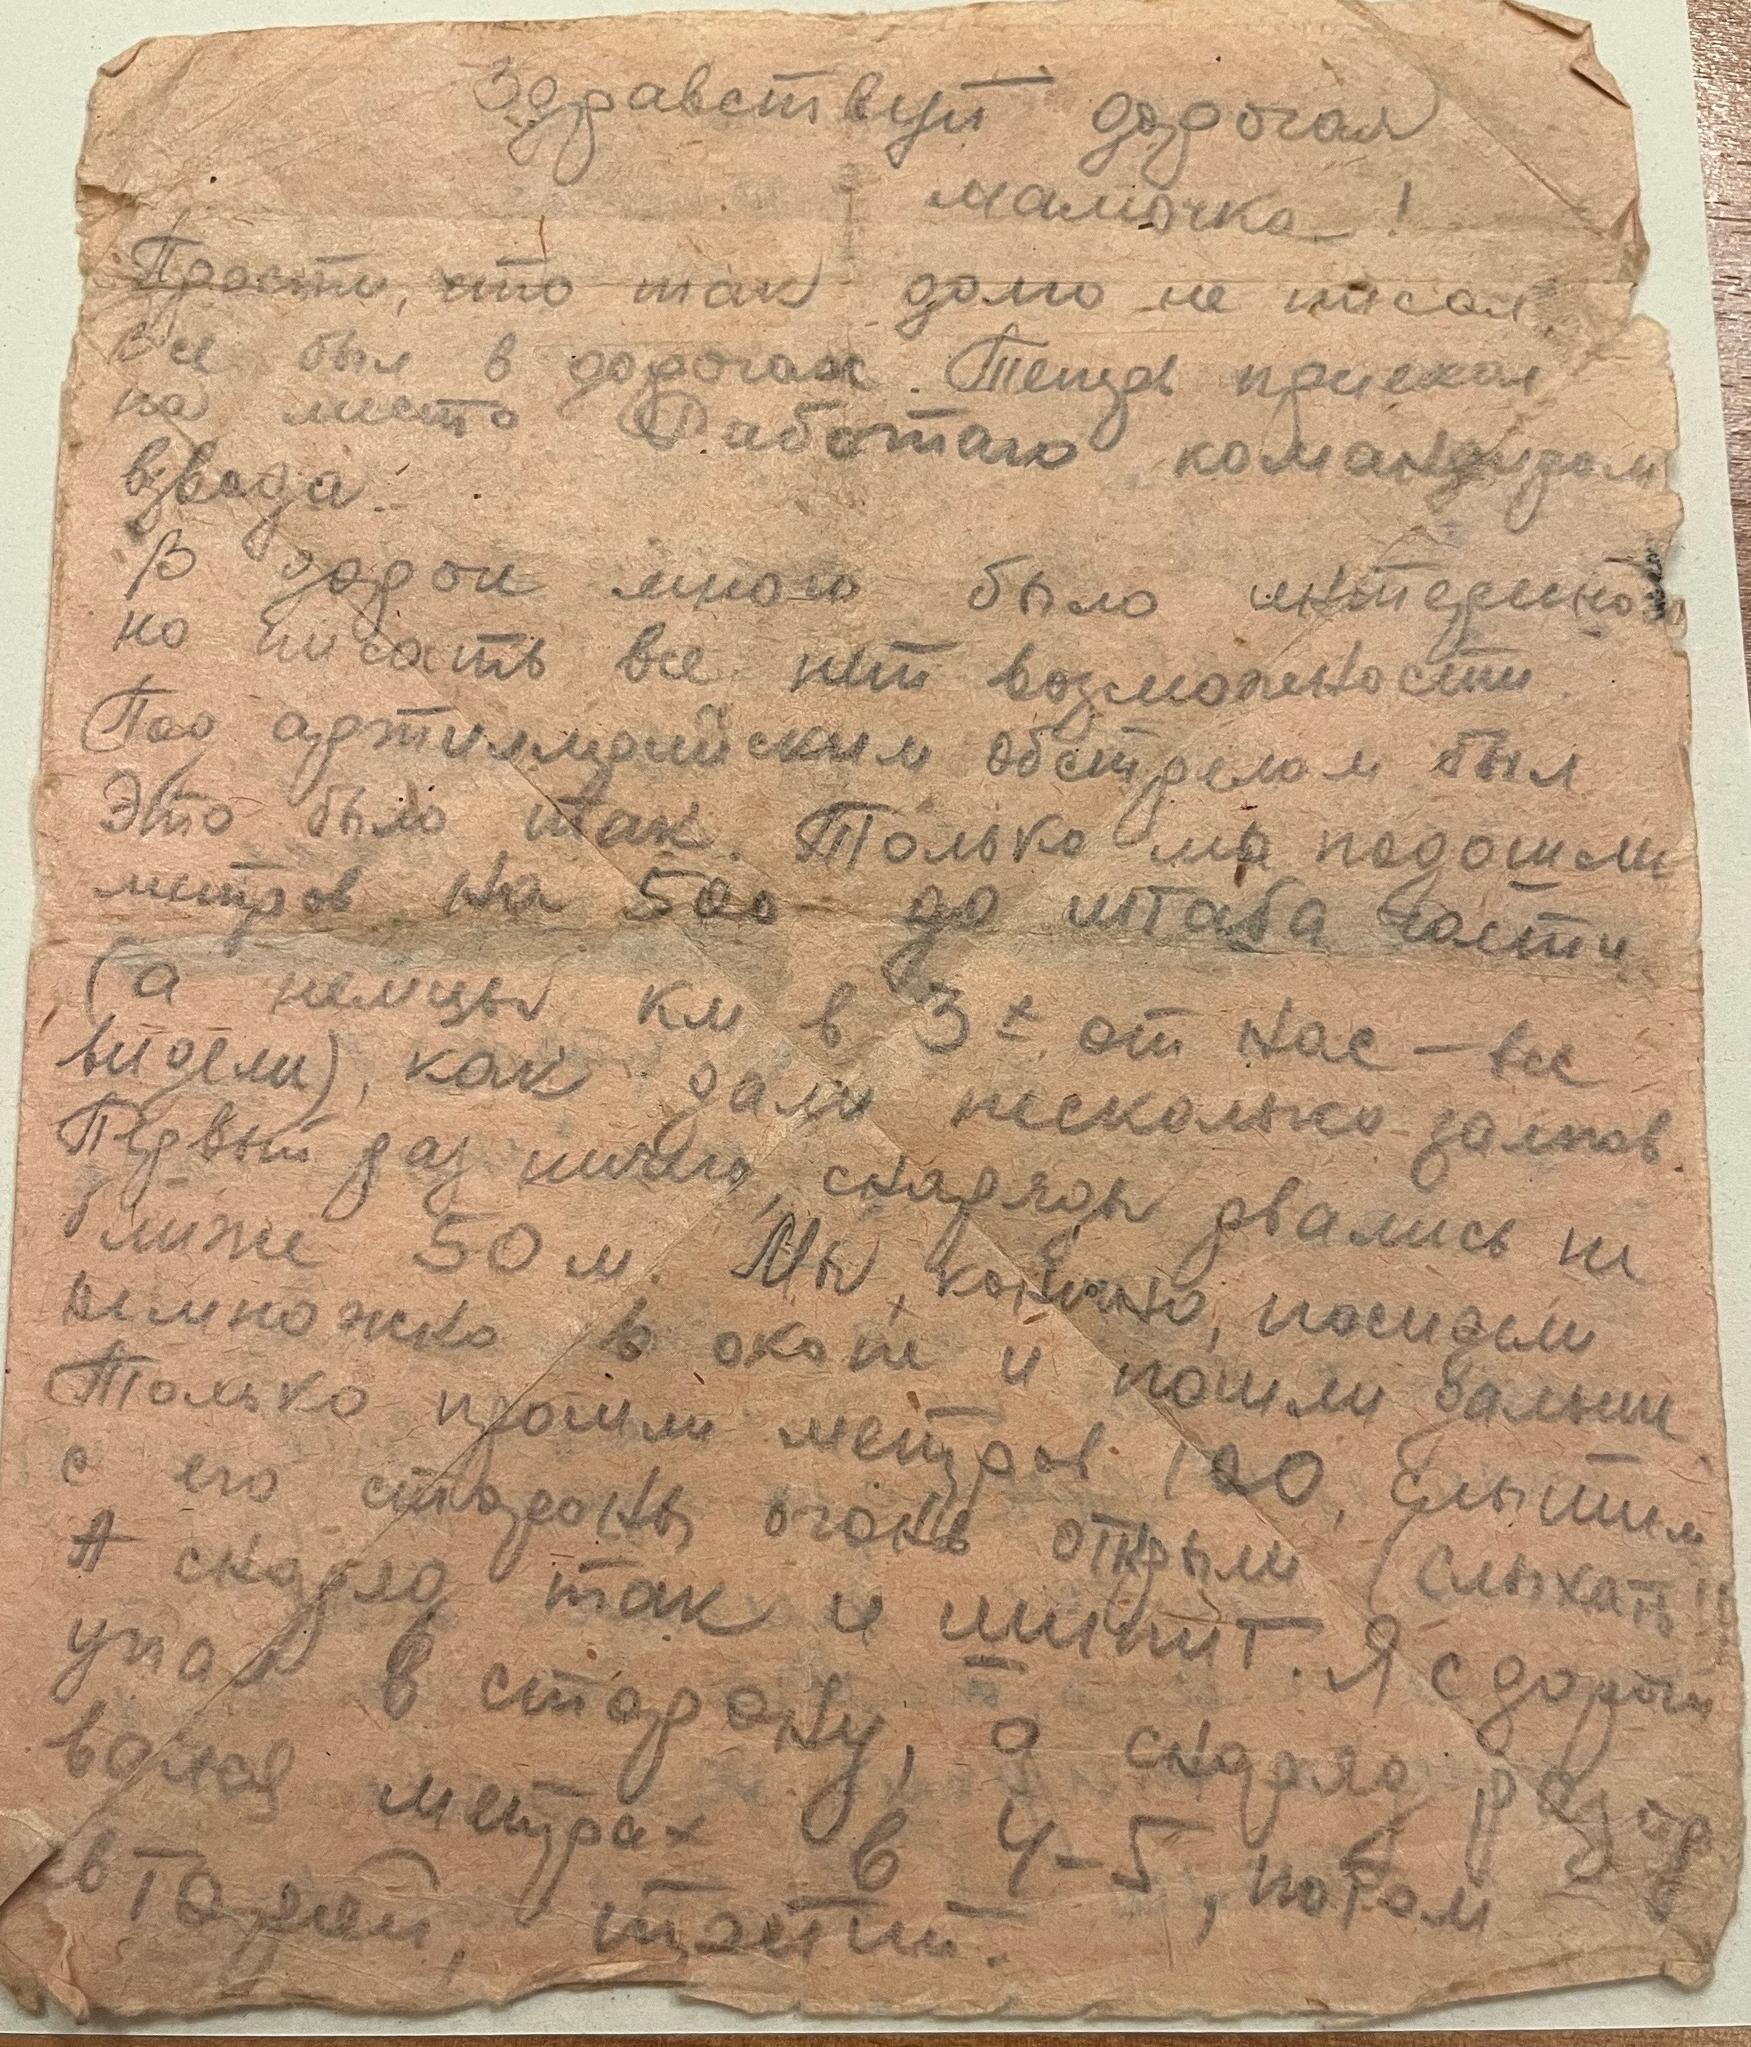 Здравствуй дорогая
мамочка!
Прости, что так долго не писал.
Все был в дорогах. Теперь приехал
на место Работаю командиром
взвода.
В дороге много было интересного
но писать все нет возможности.
Под артиллерийским обстрелом был
Это было так. Только мы подошли
метров на 500 до штаба части
(а немцы км в 3± от нас – все
видели), как дали несколько залпов.
Первый раз ничего, снаряды рвались не
ближе 50 м. Мы, конечно, посидели
немножко в окопе и пошли дальше.
Только прошли метров 120, слышим
с его стороны огонь открыли (слыхать!!
А снаряд так и шипит. Я с дороги
упал в сторону, а снаряд разор
вался метрах в 4-5, потом
второй, третий.